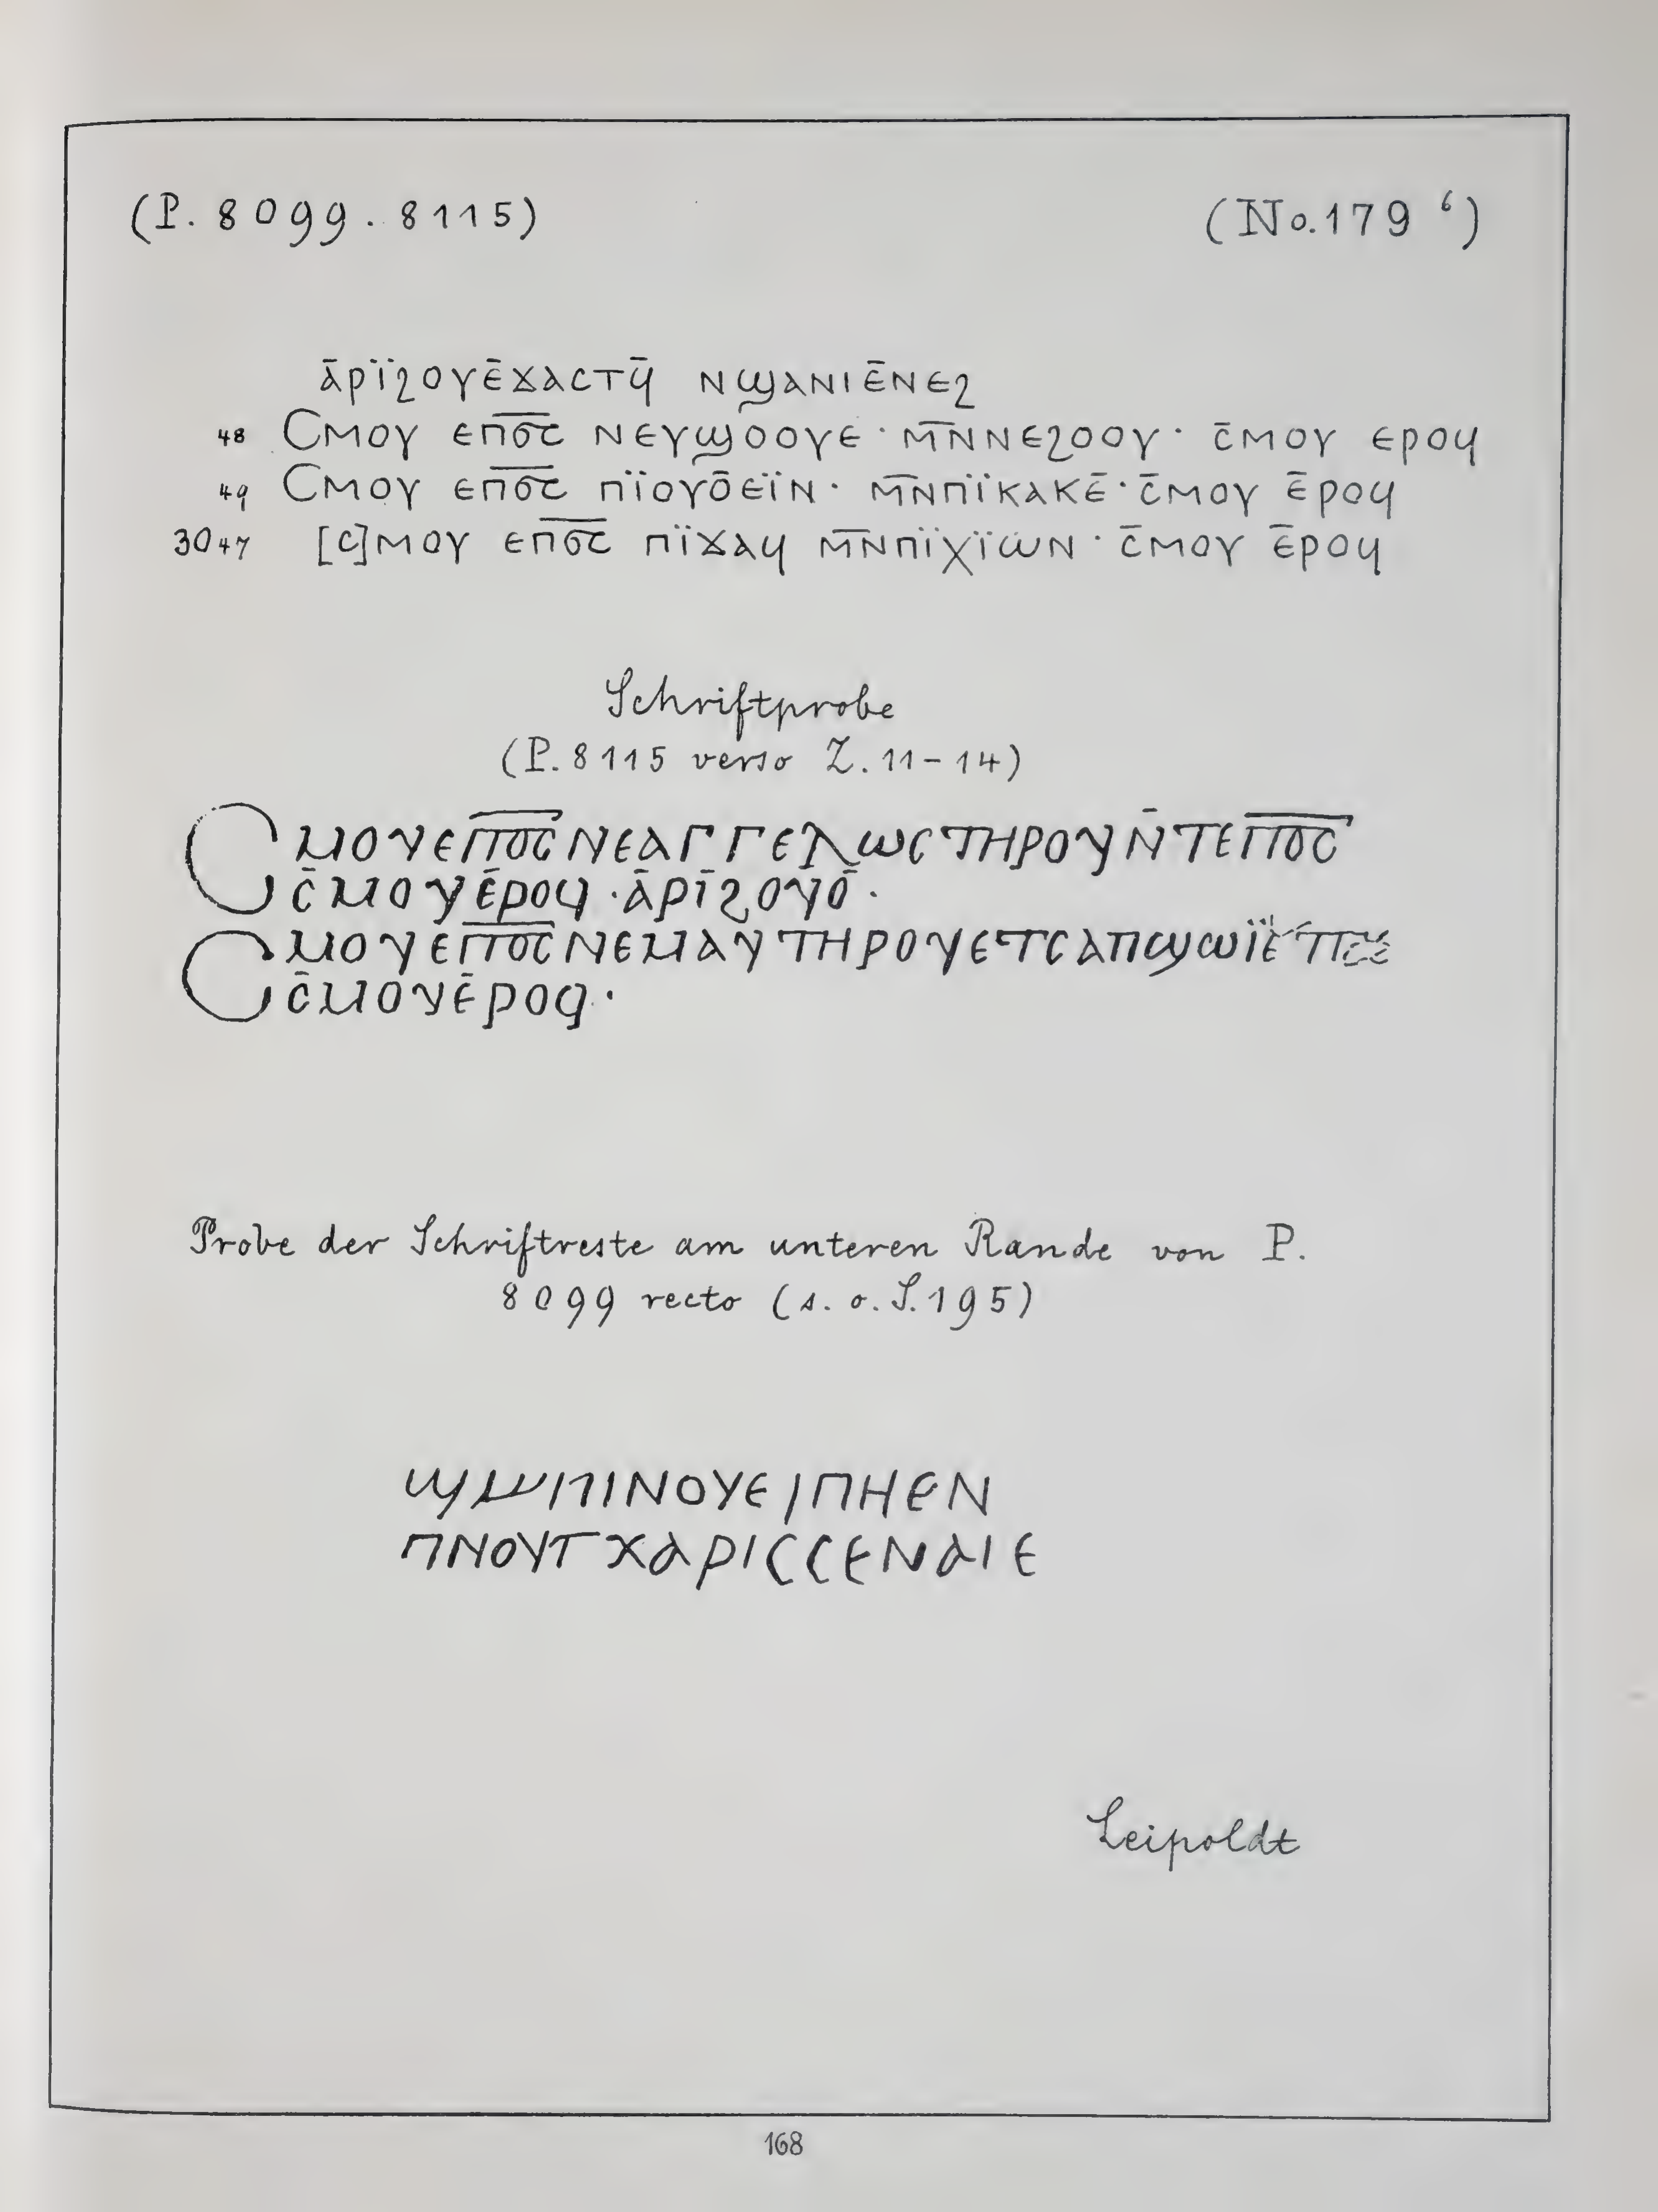 (P. 8099. 8115)
(No. 179 ⁶)
ⲁ̄ⲣⲓ̈ϩⲟⲩⲉ̄ϫⲁⲥⲧϥ̄ ⲛϣⲁⲛⲓⲉ̄ⲛⲉϩ
48 Ⲥⲙⲟⲩ ⲉⲡ̅ϭ̅ⲥ̅ ⲛⲉⲩϣⲟⲟⲩⲉ · ⲙ̅ⲛ̅ⲛⲉϩⲟⲟⲩ · ⲥ̄ⲙⲟⲩ ⲉⲣⲟϥ
49 Ⲥⲙⲟⲩ ⲉⲡ̅ϭ̅ⲥ̅ ⲡⲓ̈ⲟⲩⲟ̄ⲉⲓ̈ⲛ · ⲙ̅ⲛ̅ⲡⲓ̈ⲕⲁⲕⲉ̄ · ⲥ̄ⲙⲟⲩ ⲉ̄ⲣⲟϥ
30 47 [ⲥ]ⲙⲟⲩ ⲉⲡ̅ϭ̅ⲥ̅ ⲡⲓ̈ϫⲁϥ ⲙ̅ⲛ̅ⲡⲓ̈ⲭⲓ̈ⲱⲛ · ⲥ̄ⲙⲟⲩ ⲉ̄ⲣⲟϥ
Schriftprobe
(P. 8115 verso Z. 11-14)
Ⲥⲙⲟⲩⲉⲡ̅ϭ̅ⲥ̅ⲛⲉⲁⲅⲅⲉⲗⲱⲥⲧⲏⲣⲟⲩⲛ̄ⲧⲉⲡ̅ϭ̅ⲥ̅
ⲥ̄ⲙⲟⲩⲉ̄ⲣⲟϥ · ⲁ̄ⲣⲓ̄ϩⲟⲩⲟ̄ ·
Ⲥⲙⲟⲩⲉⲡ̅ϭ̅ⲥ̅ⲛⲉⲙⲁⲩⲧⲏⲣⲟⲩⲉⲧⲥⲁⲡϣⲱⲓ̈ⲉ̄ⲧⲡⲉ
ⲥ̄ⲙⲟⲩⲉ̄ⲣⲟϥ ·
Probe der Schriftreste am unteren Rande von P.
8099 recto (s. o. S. 195)
ϣⲙⲡⲓⲛⲟⲩⲉⲓⲡⲏⲉⲛ
ⲡⲛⲟⲩⲧⲭⲁⲣⲓⲥⲥⲉⲛⲁⲓⲉ
Leipoldt
168